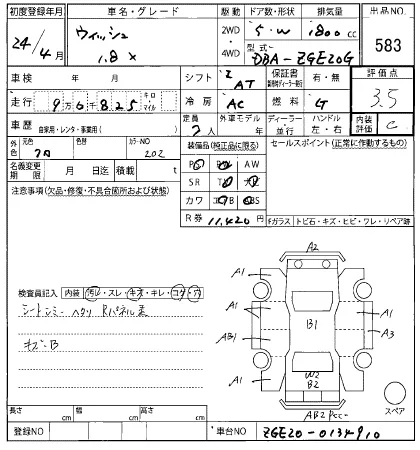 初度登録年月 車名・グレード 駆動 ドア数・形状 排気量 出品NO.
24/4月 ウィッシュ 1.8X 2WD 4WD 5・W 1800cc 583
型式 DBA-ZGE20G
車検 年 月 シフト AT 保証書 有・無 評価点
走行 9万0千825 キロ マイル 冷房 AC 燃料 G 3.5
車歴 自家用・レンタ・事業用( ) 定員 7人 外車モデル ディーラー・並行 ハンドル 左・右 内装評価 C
外色 元色 クロ 色替 カラーNO 202 装備品(純正品に限る) セールスポイント(正常に作動するもの)
名義変更期限 月 日迄 積載 t
PS PW AW
SR TV ナビ
カワ エアB ABS
注意事項(欠品・修復・不具合箇所および状態) R券 11,420円
Fガラス トビ石・キズ・ヒビ・ワレ・リペア跡
A2
A1 A1
検査員記入 内装 汚レ・スレ・キズ・キレ・コゲ・穴
A1 A1
シートシミ ヘタリ Rパネル
B1
AB1 A3
キズ・B
W2
B2
A1 A1
AB2
スペア
長さ cm 幅 cm 高さ cm
登録NO 車台NO ZGE20-0134910